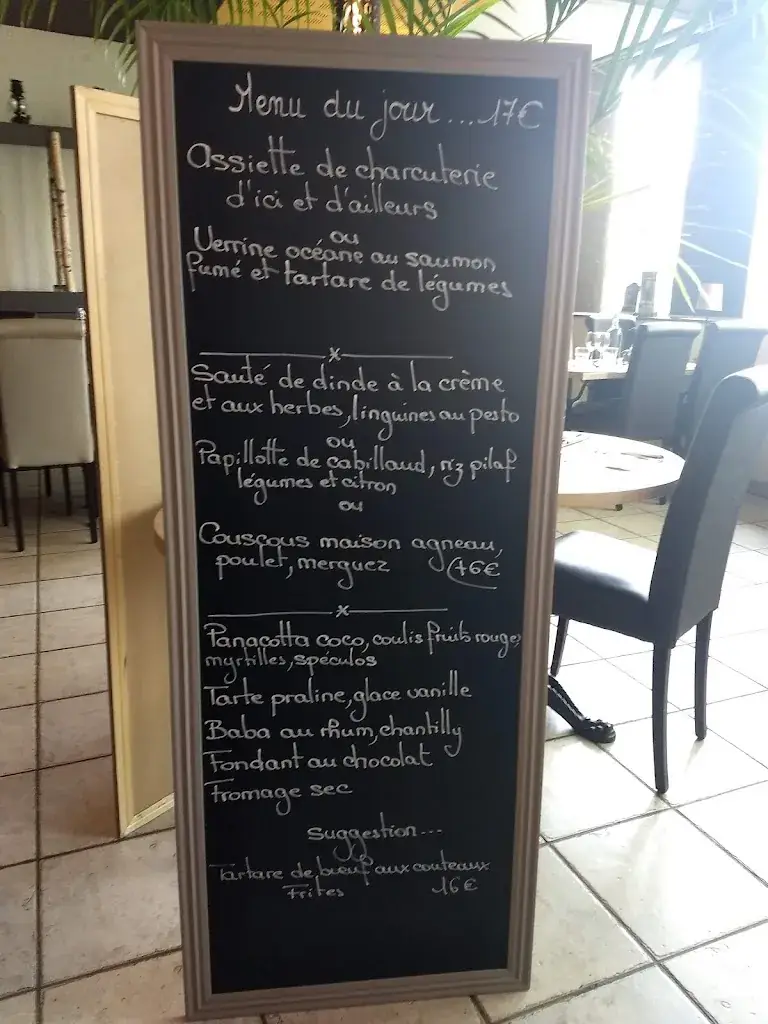 Menu du jour....17€
Assiette de charcuterie
d'ici et d'ailleurs
ou
Verrine océane au saumon
fumé et tartare de légumes
x
Sauté de dinde à la crème
et aux herbes, linguines au pesto
ou
Papillotte de cabillaud, riz pilaf
légumes et citron
ou
Couscous maison agneau,
poulet, merguez (+6€
x
Panacotta coco, coulis fruits rouges
myrtilles, spéculos
Tarte praline, glace vanille
Baba au rhum, chantilly
Fondant au chocolat
Fromage sec
Suggestion...
Tartare de bœuf aux couteaux
Frites 16€